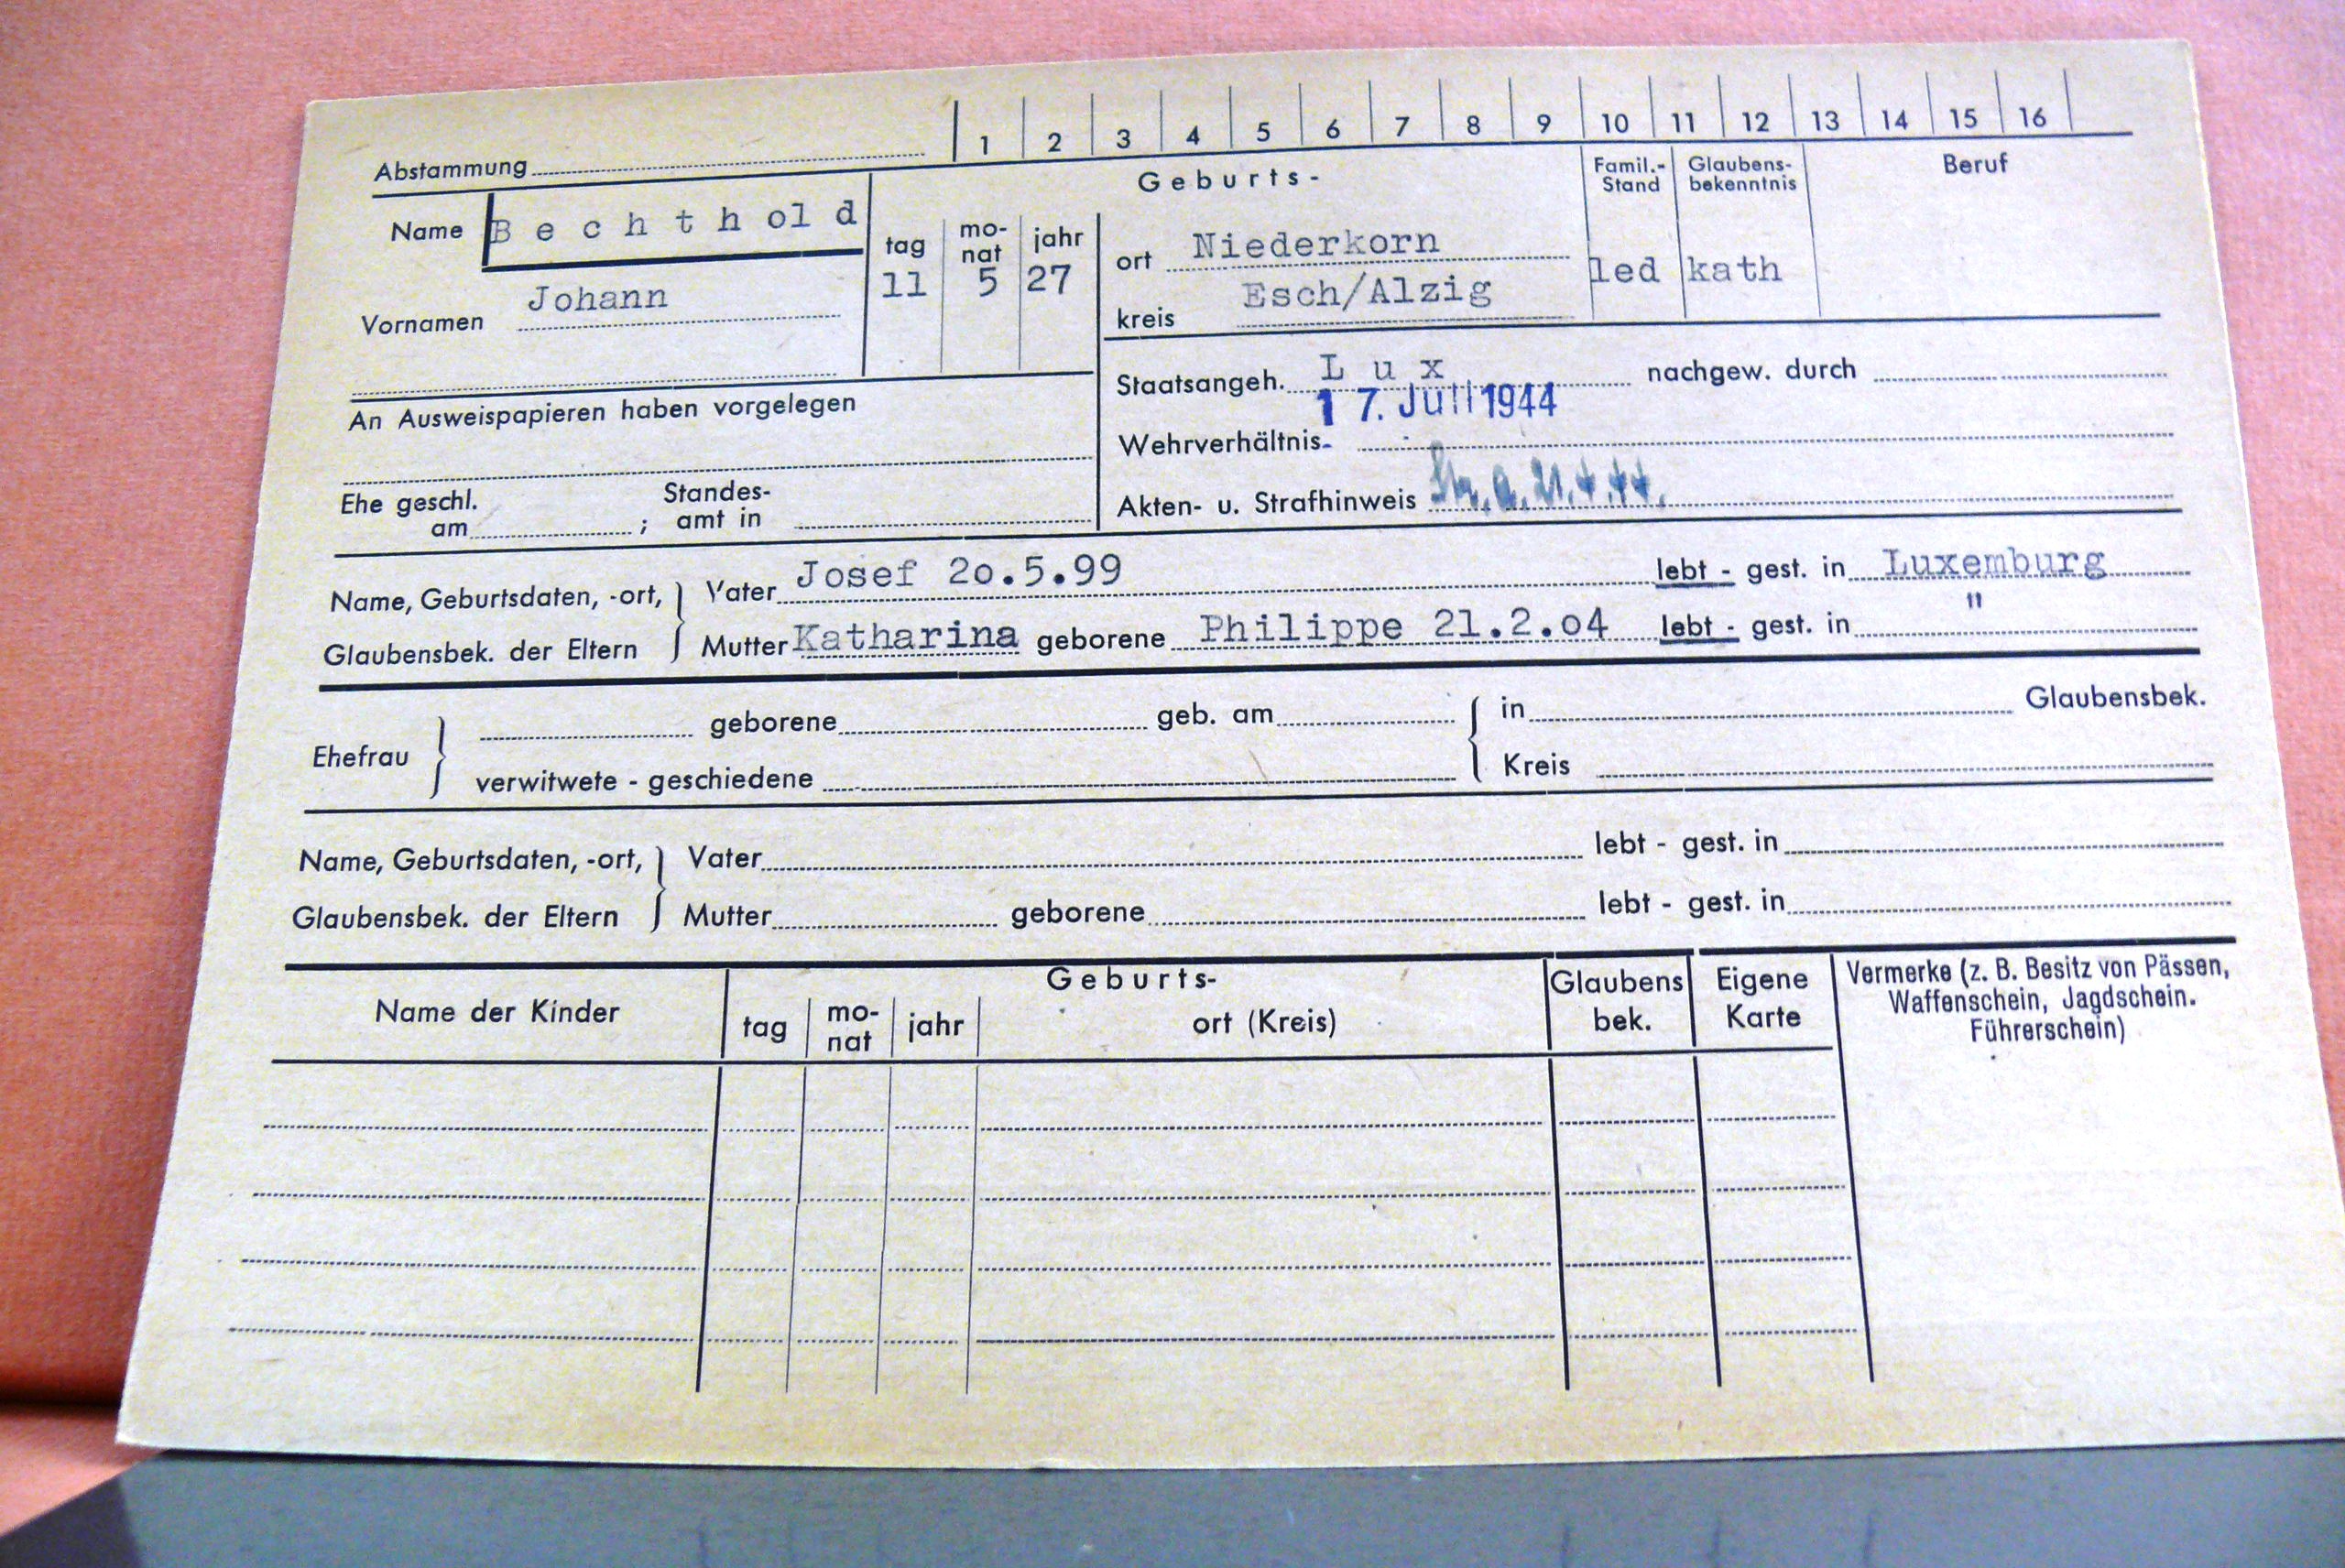 1 2 3 4 5 6 7 8 9 10 11 12 13 14 15 16
Abstammung
Name Bechthold
Vornamen Johann
Geburts-
tag mo-nat jahr
11 5 27
ort Niederkorn
kreis Esch/Alzig
Famil.-Stand
led
Glaubens-bekenntnis
kath
Beruf
An Ausweispapieren haben vorgelegen
Ehe geschl. am ; Standes-amt in
Staatsangeh. Lux nachgew. durch
17. Juli 1944
Wehrverhältnis
Akten- u. Strafhinweis 21.4.44.
Name, Geburtsdaten, -ort, Vater Josef 2o.5.99 lebt - gest. in Luxemburg
Glaubensbek. der Eltern Mutter Katharina geborene Philippe 21.2.o4 lebt - gest. in "
Ehefrau geborene geb. am in Glaubensbek.
verwitwete - geschiedene Kreis
Name, Geburtsdaten, -ort, Vater lebt - gest. in
Glaubensbek. der Eltern Mutter geborene lebt - gest. in
Name der Kinder
Geburts-
tag mo-nat jahr ort (Kreis)
Glaubens bek.
Eigene Karte
Vermerke (z. B. Besitz von Pässen,
Waffenschein, Jagdschein.
Führerschein)